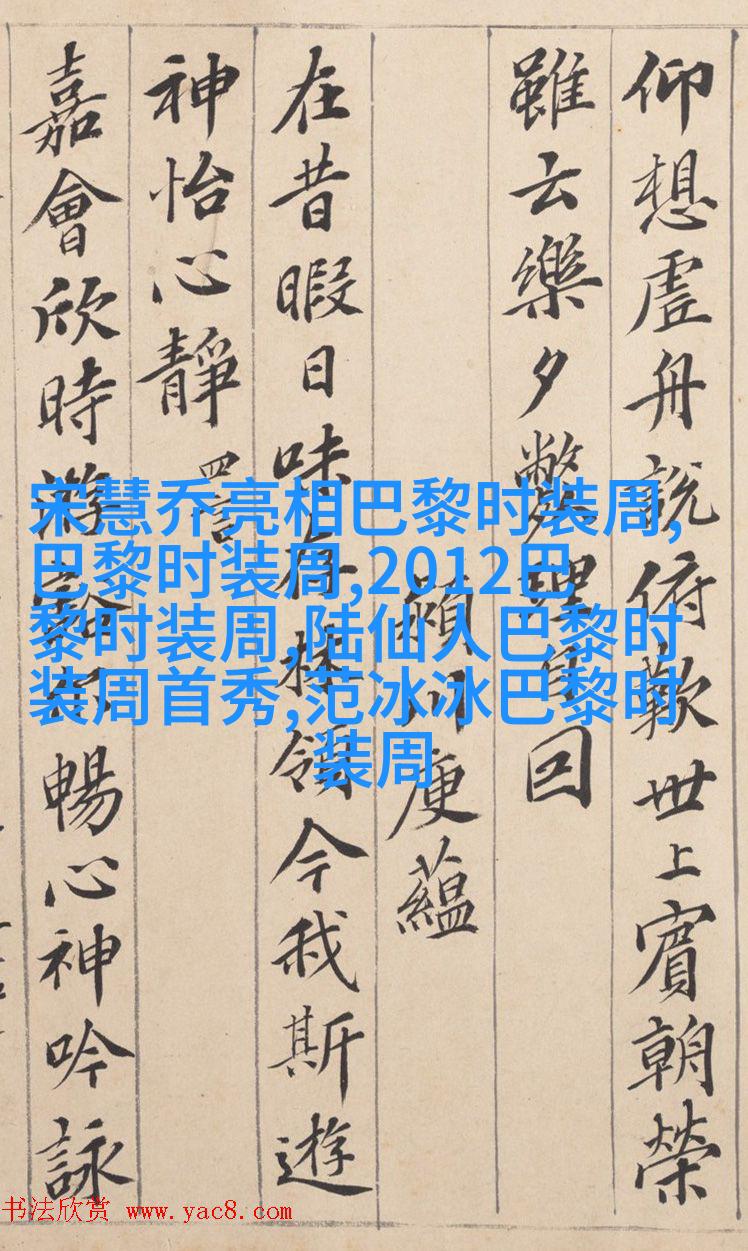 仰想虛舟說俯歎世上賓朝榮
雖云樂夕弊理自回
潁川庾蘊
在昔暇日味存林嶺今我斯遊
神怡心靜 四言
嘉會欣時游豁爾暢心神吟詠
宋慧乔亮相巴黎时装周,
巴黎时装周,2012巴
黎时装周,陆仙人巴黎时
装周首秀,范冰冰巴黎时
装周
书法欣赏 www.yac8.com